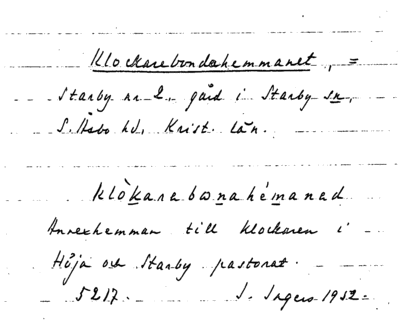 Klockarebondahemmanet, =
Starby nr 2, gård i Starby sn,
S. Åsbo hd, Krist. län.
klòkarabonahémanad
Annexhemman till klockaren i
Höja och Starby pastorat.
5217. I. Ingers 1932.